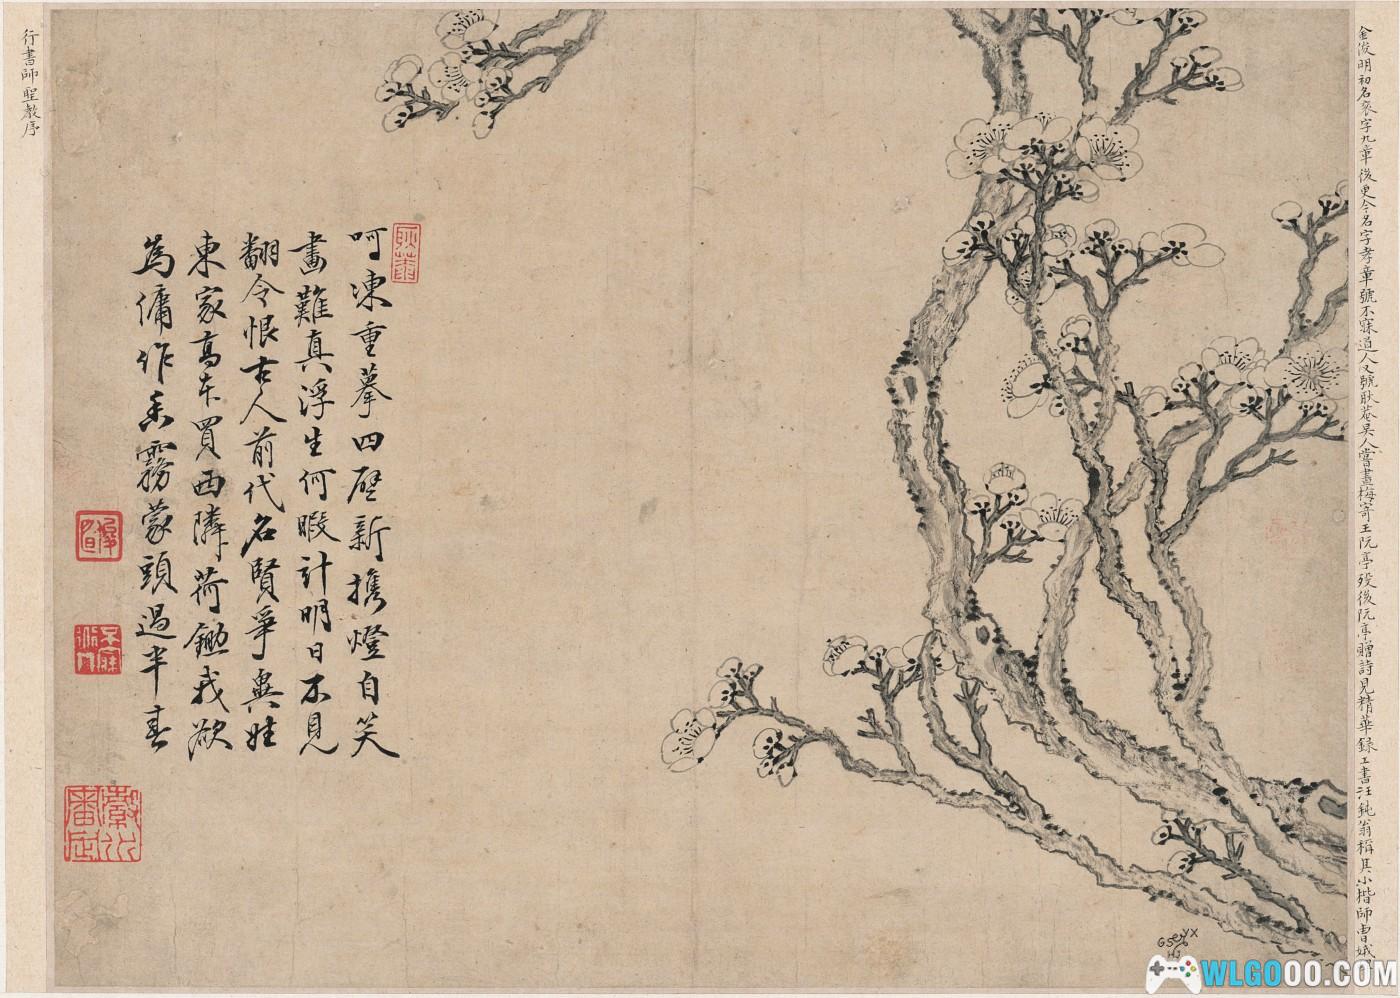 金俊明初名袞字九章後更今名字孝章號不寐道人又號耿菴吳人嘗畫梅寄王阮亭歿後阮亭贈詩見精華錄工書汪鈍翁稱其小楷師曹娥
呵凍重摹四壁新攜燈自笑
畫難真浮生何暇計明日不見
翻令恨古人前代名賢爭與娃
東家高車買西隣荷鋤我欲
為傭作香霧蒙頭過半春
行書師聖教序
耿菴
俊明
不寐道人
WLGOOO.COM